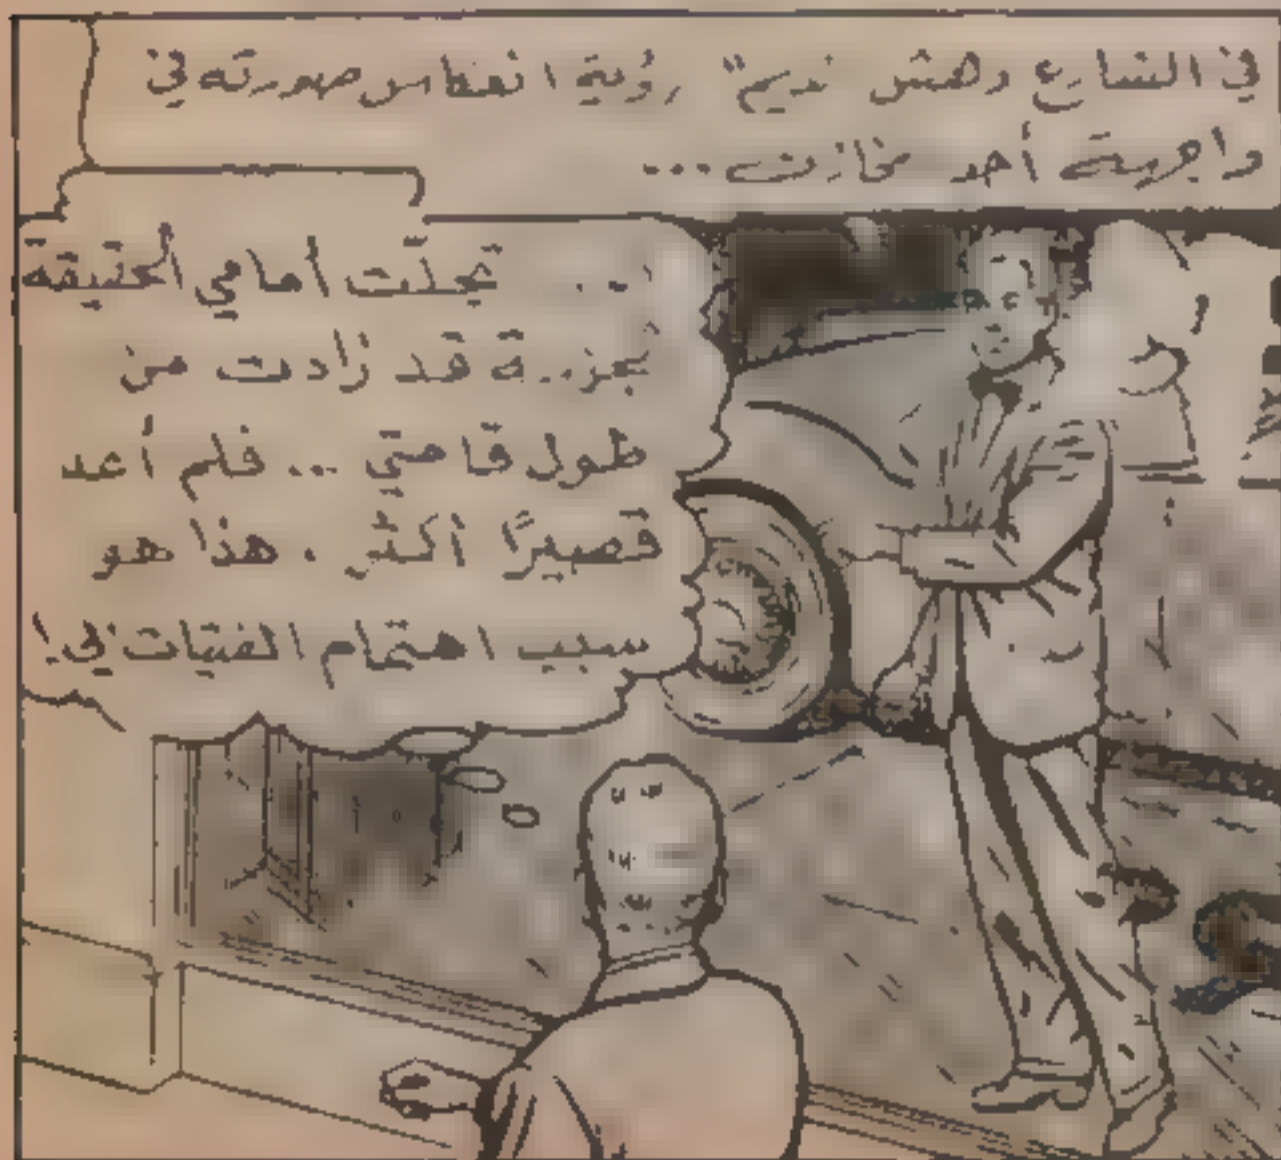 في الشارع دهش "نديم" رؤية انعكاس صورته في
واجهة أحد مخازن ...
... تجلّت أمامي الحقيقة
قد زادت من
طول قامتي ... فلم أعد
قصيرًا أكثر . هذا هو
سبب اهتمام الفتيات بي !